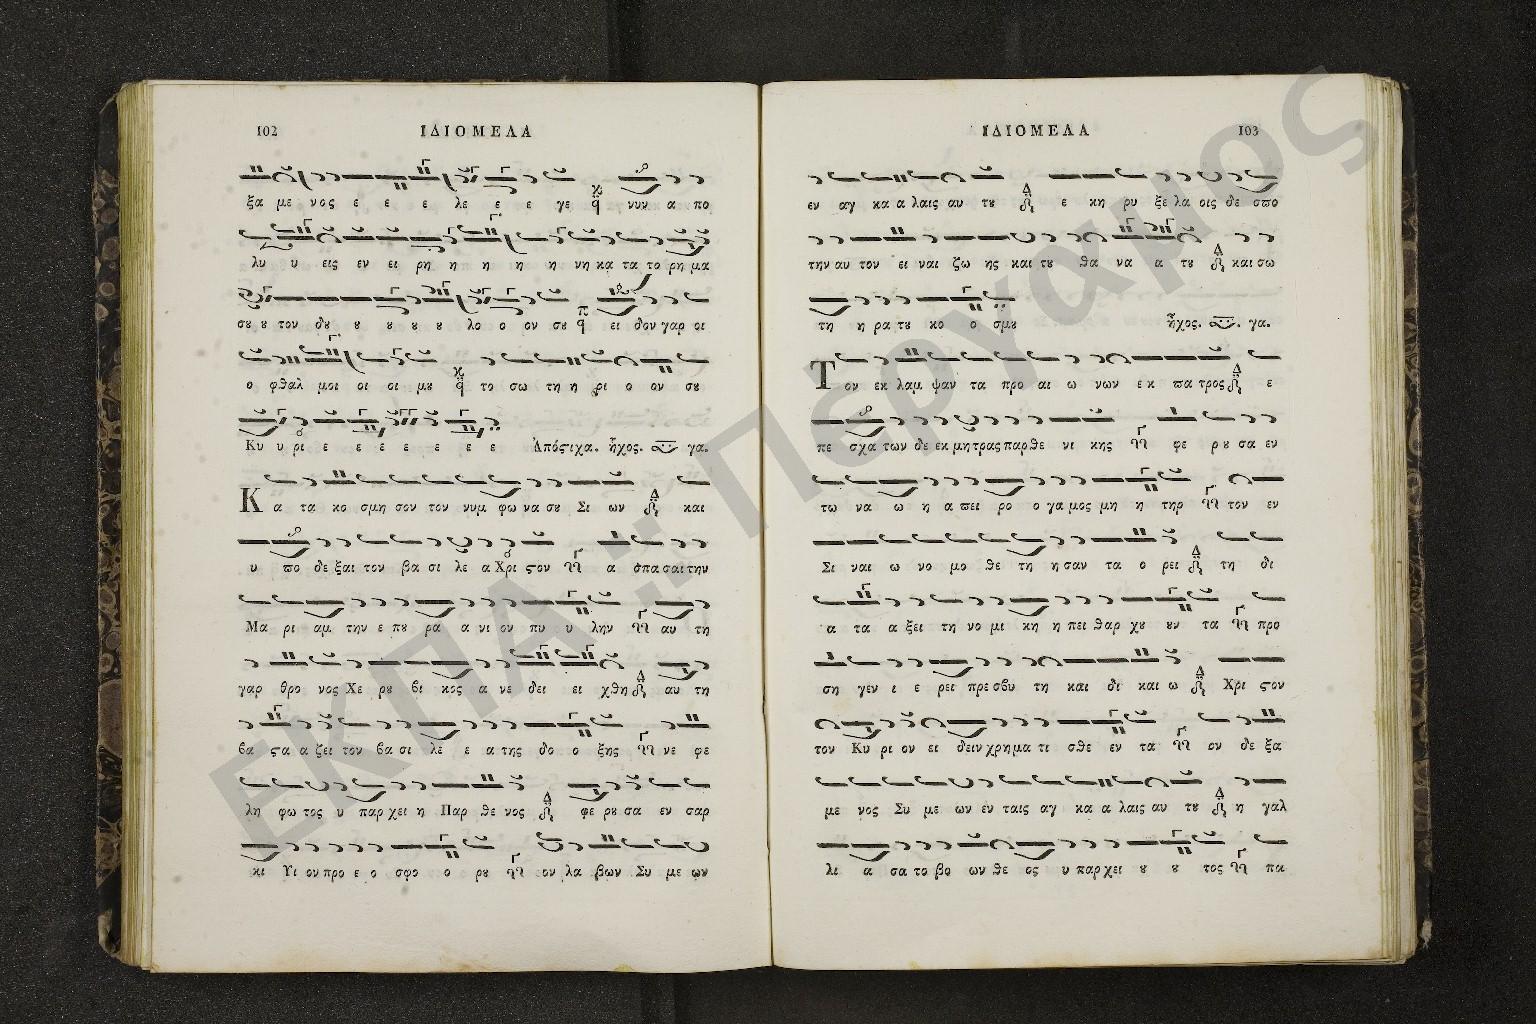 102 ΙΔΙΟΜΕΛΑ
ξα με νος ε ε ε λε ε ε γε νυν α πο
λυ υ εις εν ει ρη η η η η νη κα τα το ρη μα
σου ου τον δου ου ου ου ου λο ο ον σου ει δον γαρ οι
ο φθαλ μοι οι οι μου το σω τη η ρι ο ον σου
Κυ υ ρι ε ε ε ε ε ε ε Ἀπόστιχα. ἦχος. γα.
Κ α τα κο σμη σον τον νυμ φω να σου Σι ων και
υ πο δε ξαι τον βα σι λε α Χρι στον α σπα σαι την
Μα ρι αμ την ε που ρα α νι ον πυ υ λην αυ τη
γαρ θρο νος Χε ρου βι κος α νε δει ει χθη αυ τη
βα στα α ζει τον βα σι λε ε α της δο ο ξης νε φε
λη φω τος υ παρ χει η Παρ θε νος φε ρου σα εν σαρ
κι Υι ον προ ε ο σφο ο ρου ον λα βων Συ με ων
ΙΔΙΟΜΕΛΑ 103
εν αγ κα α λαις αυ του ε κη ρυ ξε λα οις δε σπο
την αυ τον ει ναι ζω ης και του θα να α του και σω
τη η ρα του κο ο σμου ἦχος. γα.
Τ ον εκ λαμ ψαν τα προ αι ω νων ε κ πα τρος ε
πε σχα των δε εκ μη τρας παρ θε νι κης φε ρου σα εν
τω να ω η α πει ρο ο γα μος μη η τηρ τον εν
Σι ναι ω νο μο θε τη η σαν τα ο ρει τη δι
α τα α ξει τη νο μι κη η πει θαρ χου ουν τα προ
ση γεν ι ε ρει πρε σβυ τη και δι και ω Χρι στον
τον Κυ ρι ον ει δειν χρημα τι σθε εν τα ον δε ξα
με νος Συ με ων εν ταις αγ κα α λαις αυ του η γαλ
λι α σα το βο ων θε ος υ παρ χει ου ου τος πα
ΕΚΠΑ :: Πέργαμος